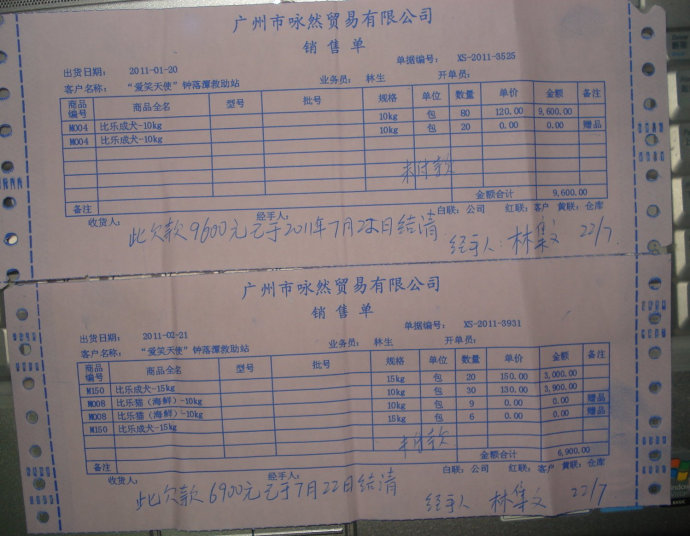 广州市咏然贸易有限公司
销售单
单据编号： XS-2011-3525
出货日期： 2011-01-20
客户名称： “爱笑天使”钟落潭救助站 业务员： 林生 开单员：
商品编号 商品全名 型号 批号 规格 单位 数量 单价 金额 备注
M004 比乐成犬-10kg 10kg 包 80 120.00 9,600.00
M004 比乐成犬-10kg 10kg 包 20 0.00 0.00 赠品
未付款
金额合计 9,600.00
备注
收货人： 经手人： 白联：公司 红联：客户 黄联：仓库
此欠款9600元已于2011年7月22日结清
经手人：林集文 22/7
广州市咏然贸易有限公司
销售单
单据编号： XS-2011-3931
出货日期： 2011-02-21
客户名称： “爱笑天使”钟落潭救助站 业务员： 林生 开单员：
商品编号 商品全名 型号 批号 规格 单位 数量 单价 金额 备注
M150 比乐成犬-15kg 15kg 包 20 150.00 3,000.00
M008 比乐猫（海鲜）-10kg 10kg 包 30 130.00 3,900.00
M008 比乐猫（海鲜）-10kg 10kg 包 9 0.00 0.00 赠品
M150 比乐成犬-15kg 15kg 包 6 0.00 0.00 赠品
未付款
金额合计 6,900.00
备注
收货人： 经手人： 白联：公司 红联：客户 黄联：仓库
此欠款6900元已于7月22日结清
经手人 林集文 22/7